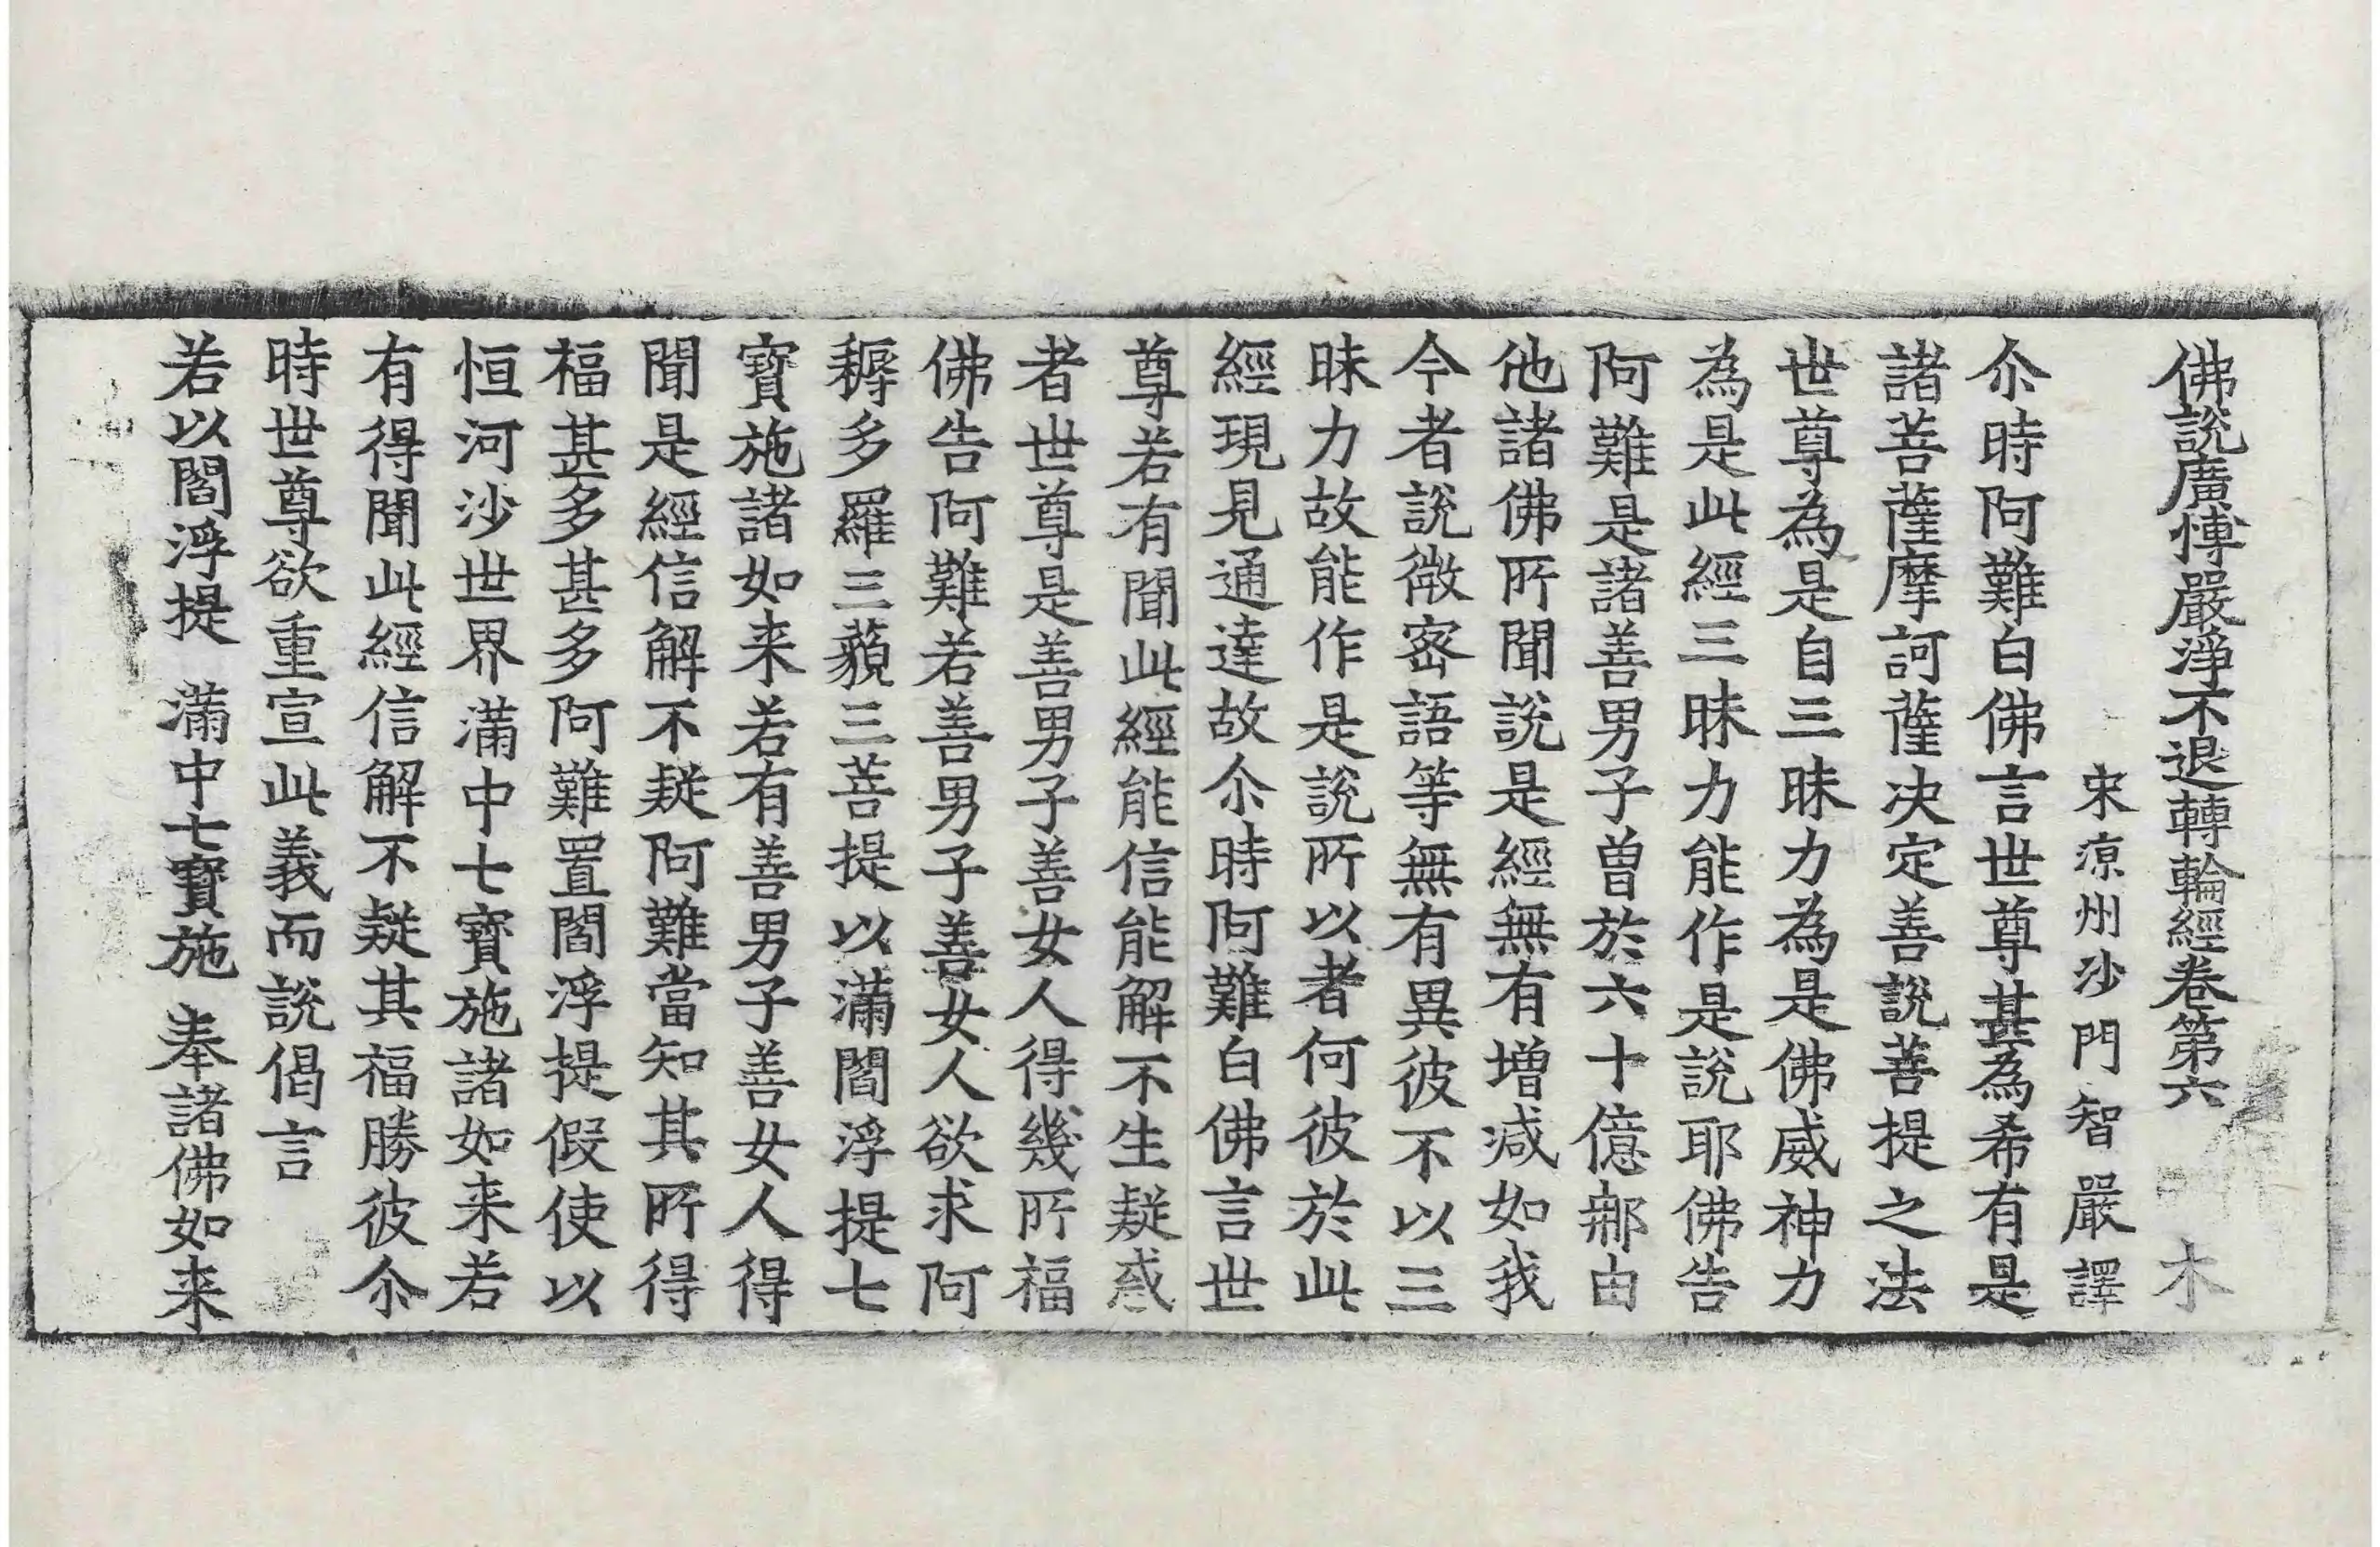 佛說廣愽嚴淨不退轉輪經卷第六 木
宋涼州沙門智嚴譯
尒時阿難白佛言世尊甚為希有是
諸菩薩摩訶薩决定善說菩提之法
世尊為是自三昧力為是佛威神力
為是此經三昧力能作是說耶佛告
阿難是諸善男子曽於六十億𨚗由
他諸佛所聞說是經無有増减如我
今者說微宻語等無有異彼不以三
昧力故能作是說所以者何彼於此
經現見通達故尒時阿難白佛言世
尊若有聞此經能信能解不生疑惑
者世尊是善男子善女人得幾所福
佛告阿難若善男子善女人欲求阿
耨多羅三藐三菩提以滿閻浮提七
寶施諸如来若有善男子善女人得
聞是經信解不疑阿難當知其所得
福甚多甚多阿難置閻浮提假使以
恒河沙世界滿中七寶施諸如来若
有得聞此經信解不疑其福勝彼尒
時世尊欲重宣此義而說偈言
若以閻浮提 滿中七寶施 奉諸佛如来